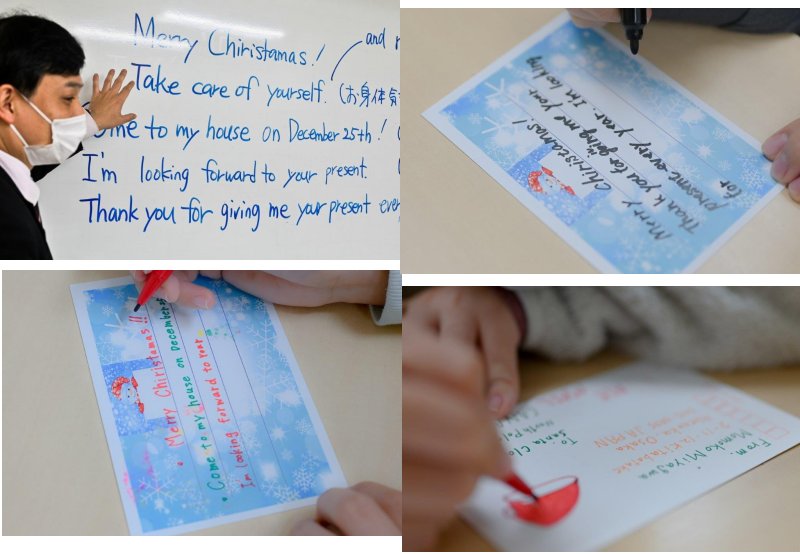 Merry Chiristamas!
and
Take care of yourself. (お身体気
Come to my house on December 25th! (
I'm looking forward to your present. (
Thank you for giving me your present ever
Merry Chiristamas!
Thank you for giving me your
present every year. I'm looking
for
• Merry Chiristamas!!
• Come to my house on December
I'm looking forward to your
To Santa Clo
North Pol
From. Momoko Miyajiwa
Osaka
JAPAN